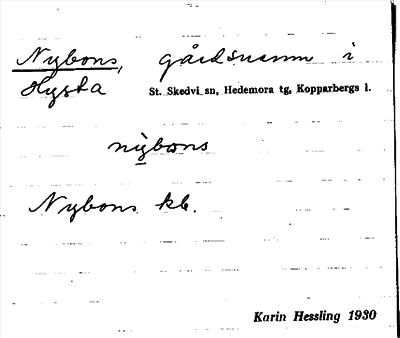 Nybons, gårdsnamn i
Hysta St. Skedvi sn, Hedemora tg, Kopparbergs l.
nỳbons
Nybons kb.
Karin Hessling 1930